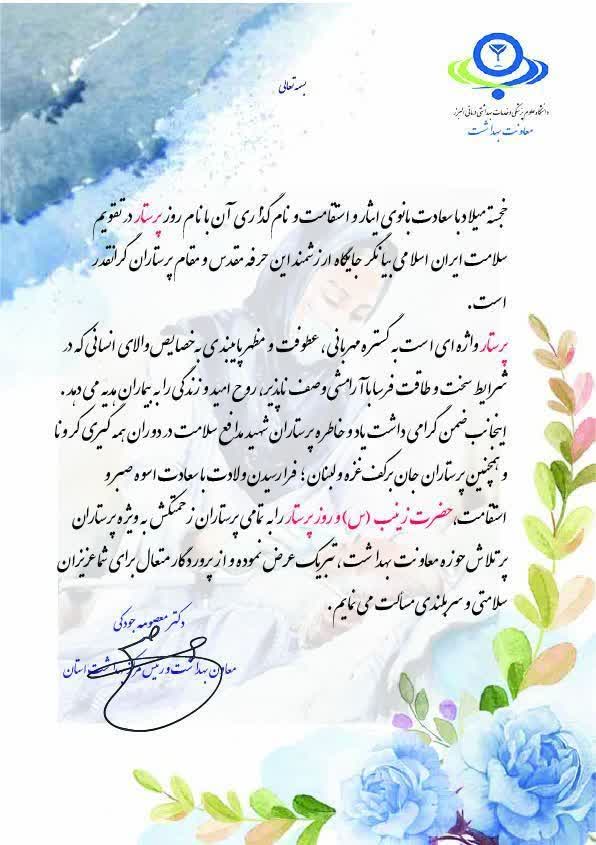 بسمه تعالی
دانشگاه علوم پزشکی و خدمات بهداشتی درمانی البرز
معاونت بهداشت
خجسته میلاد با سعادت بانوی ایثار و استقامت و نام گذاری آن با نام روز پرستار در تقویم
سلامت ایران اسلامی بیانگر جایگاه ارزشمند این حرفه مقدس و مقام پرستاران گرانقدر
است.
پرستار واژه ای است به گستره مهربانی، عطوفت و مظهر پایبندی به خصایص والای انسانی که در
شرایط سخت و طاقت فرسا با آرامشی وصف ناپذیر، روح امید و زندگی را به بیماران هدیه می دهد.
اینجانب ضمن گرامی داشت یاد و خاطره پرستاران شهید مدافع سلامت در دوران همه گیری کرونا
و همچنین پرستاران جان برکف غزه و لبنان؛ فرا رسیدن ولادت با سعادت اسوه صبر و
استقامت، حضرت زینب (س) و روز پرستار را به تمامی پرستاران زحمتکش به ویژه پرستاران
پر تلاش حوزه معاونت بهداشت، تبریک عرض نموده و از پروردگار متعال برای شما عزیزان
سلامتی و سربلندی مسألت می نمایم.
دکتر معصومه جودکی
معاون بهداشت و رئیس مرکز بهداشت استان